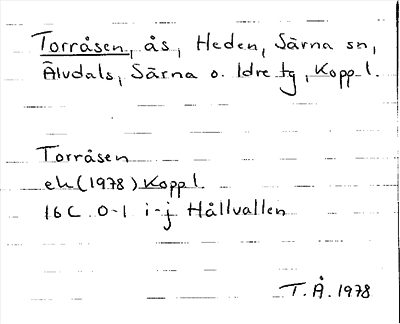 Torråsen, ås, Heden, Särna sn,
Älvdals, Särna o. Idre tg, Kopp l.
Torråsen
ek (1978) Kopp l.
16 C 0-1 i-j Hållvallen
T.Å. 1978